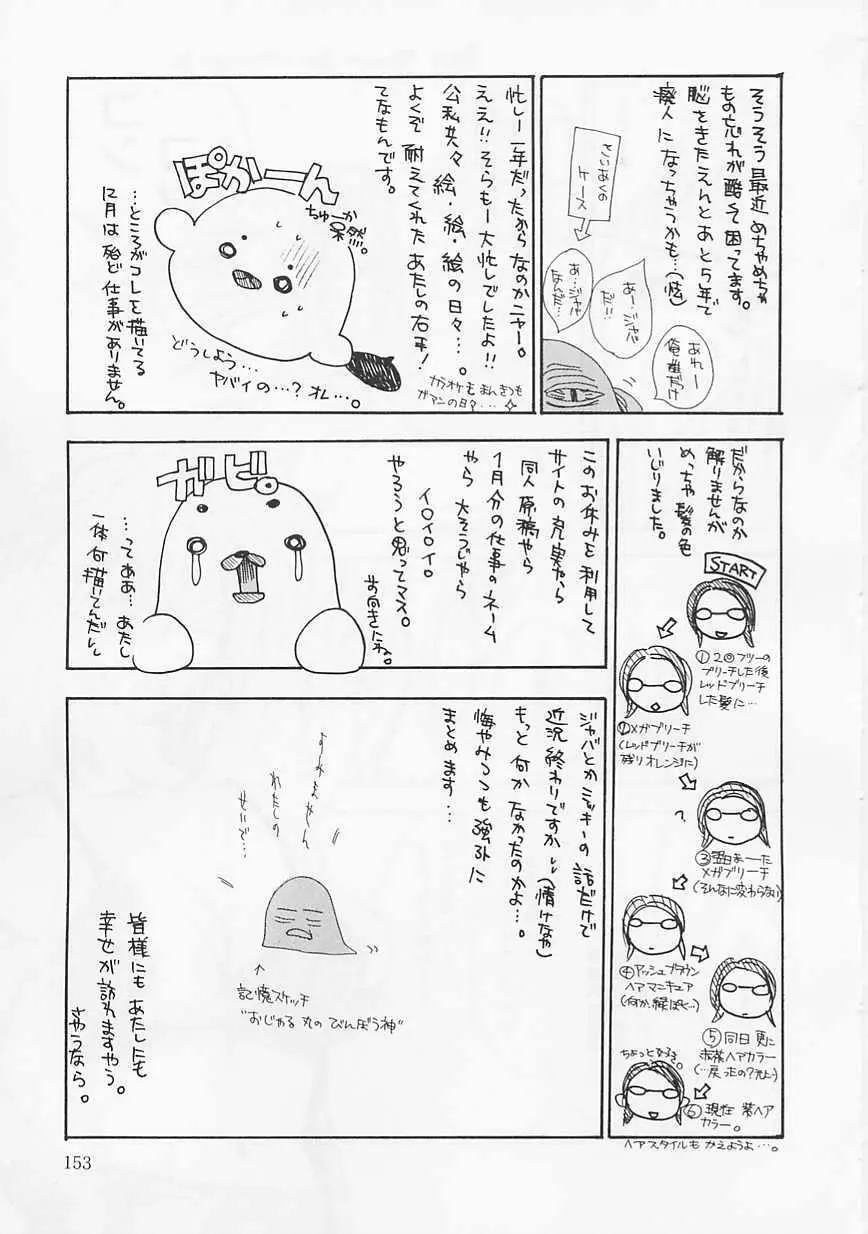 そうそう最近めちゃめちゃ
もの忘れが酷くて困ってます。
脳をきたえんとあと5年で
廃人になっちゃうかも…(怯)
といあくの
ケース
あれー
俺誰だっけ
あー…ジャバ
だ!!
あ…ジャバ
なんだ…
忙しー年だったからなのかニャー。
ええ!!そらもー大忙しでしたよ!!
公私共々絵・絵・絵の日々…。
よくぞ耐えてくれたあたしの右手!
てなもんです。
カラオケもまんきつも
ガマンの日々…
ぽかーん
ちゅーか呆然。
どうしよう…
ヤバイの…?オレ…。
…ところがコレを描いてる
12月は殆ど仕事がありません。
だからなのか
解りませんが
めっちゃ髪の色
いじりました。
START
①2回フツーの
ブリーチした後
レッドブリーチ
した髪に…
②メガブリーチ
(レッドブリーチが
残りオレンジに)
?
③翌日まーた
メガブリーチ
(そんなに変わらない)
④アッシュブラウン
ヘアマニキュア
(何か、緑ぽく…)
⑤同日更に
赤茶ヘアカラー
ちょっと好き。
⑥現在 紫ヘア
カラー。
ヘアスタイルもかえようよ…。
このお休みを利用して
サイトの充実やら
同人原稿やら
1月分の仕事のネーム
やら大そうじやら
イロイロ。
やろうと思ってマス。
前向きにね。
ガビ。
…ってああ…あたし
一体何描いてんだし
ジャバとかミッキーの話だけで
近況終わりですか(情けなや)
もっと何かなかったのかよ…。
悔やみつつも強引に
まとめます…
すみません
わたしの
せいで…
↑
記憶スケッチ
"おじゃる丸のびんぼう神"
皆様にもあたしにも
幸せが訪れますやう。
さやうなら。
153